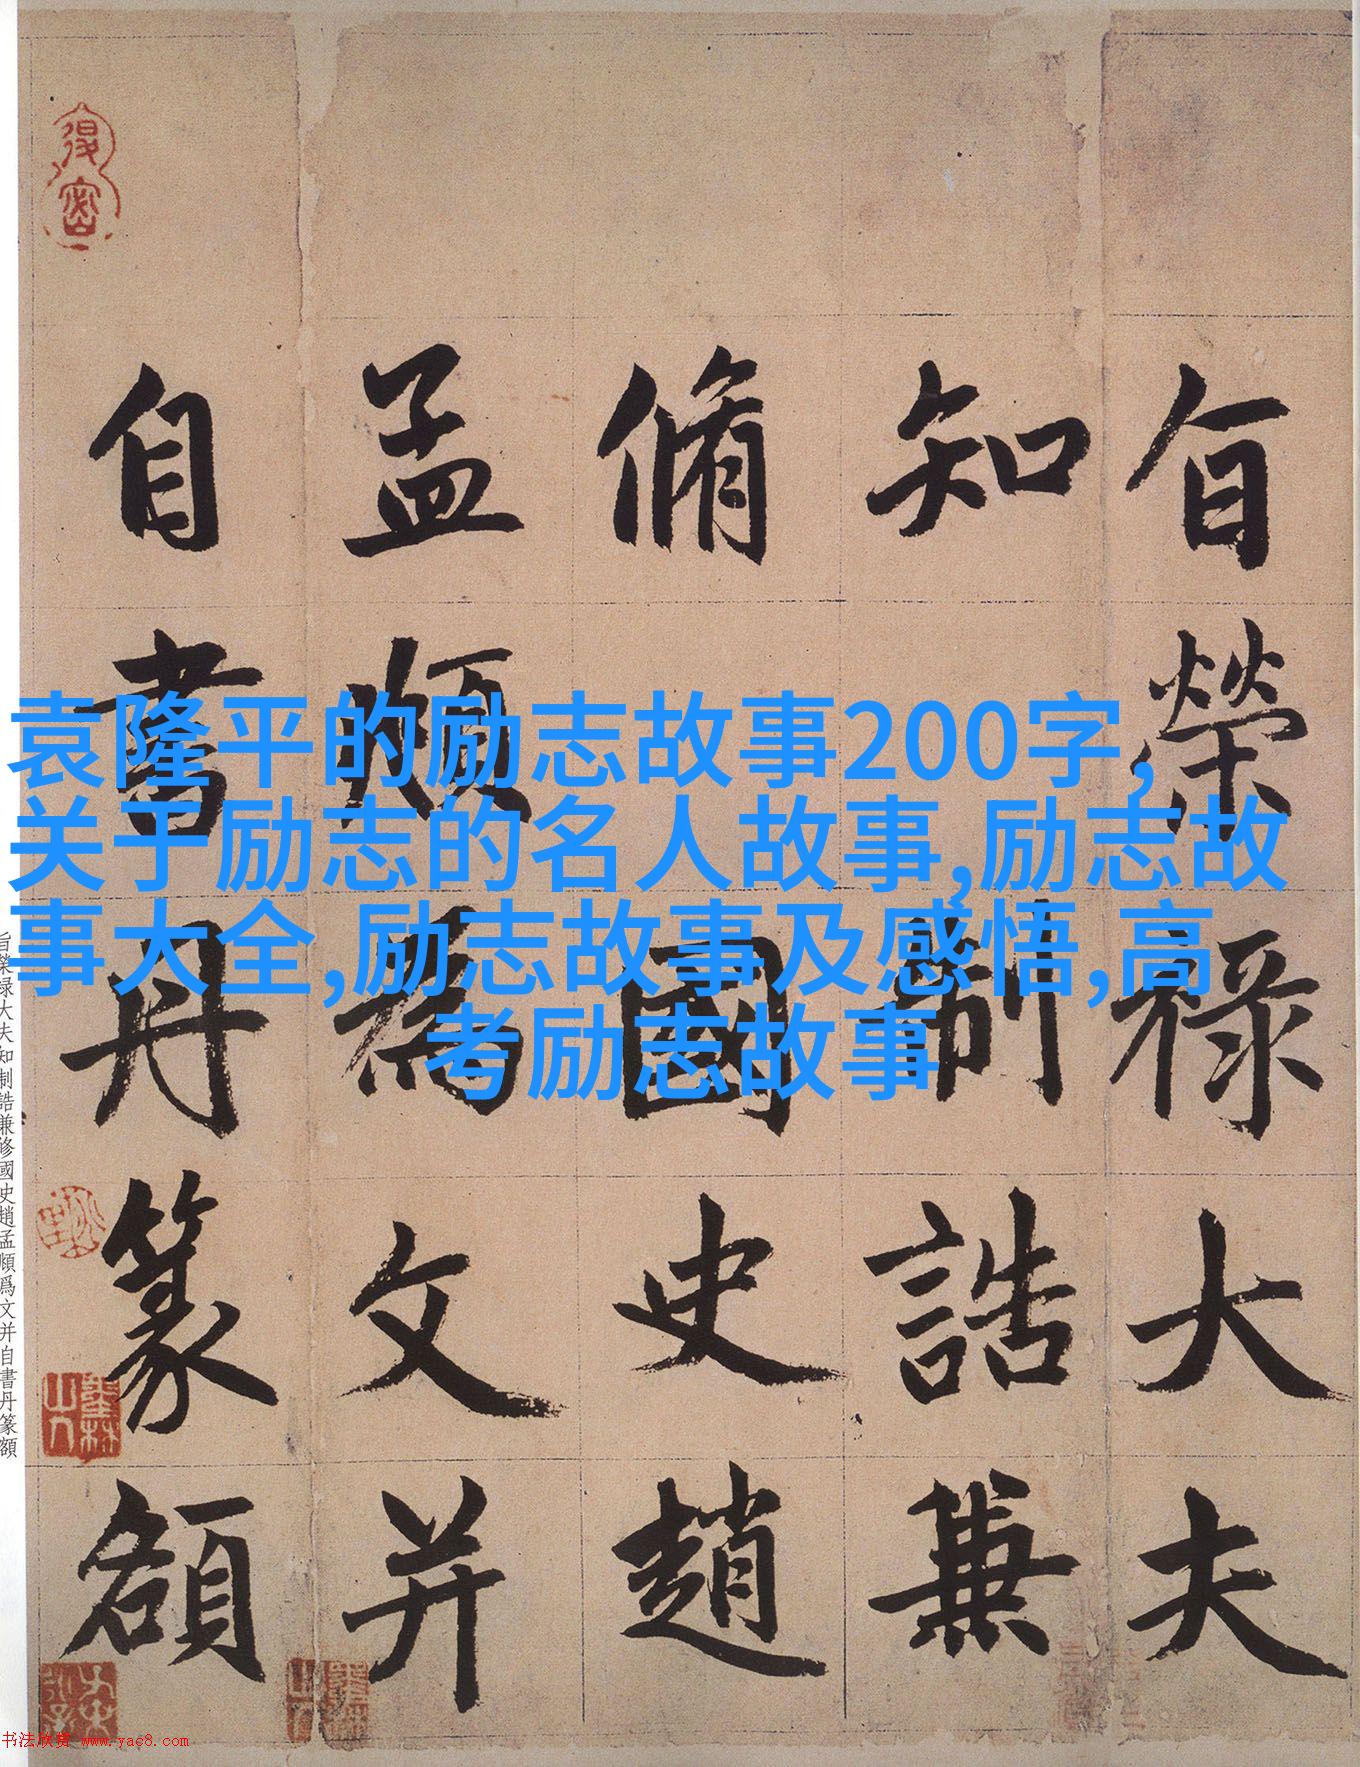 旨榮祿大夫
知制誥兼
脩國史趙
孟頫為文并
自書丹篆額
袁隆平的励志故事200字,
关于励志的名人故事,励志故
事大全,励志故事及感悟,高
考励志故事
旨榮禄大夫知制誥兼修國史趙孟頫爲文并自書丹篆額
书法欣赏 www.yac8.com